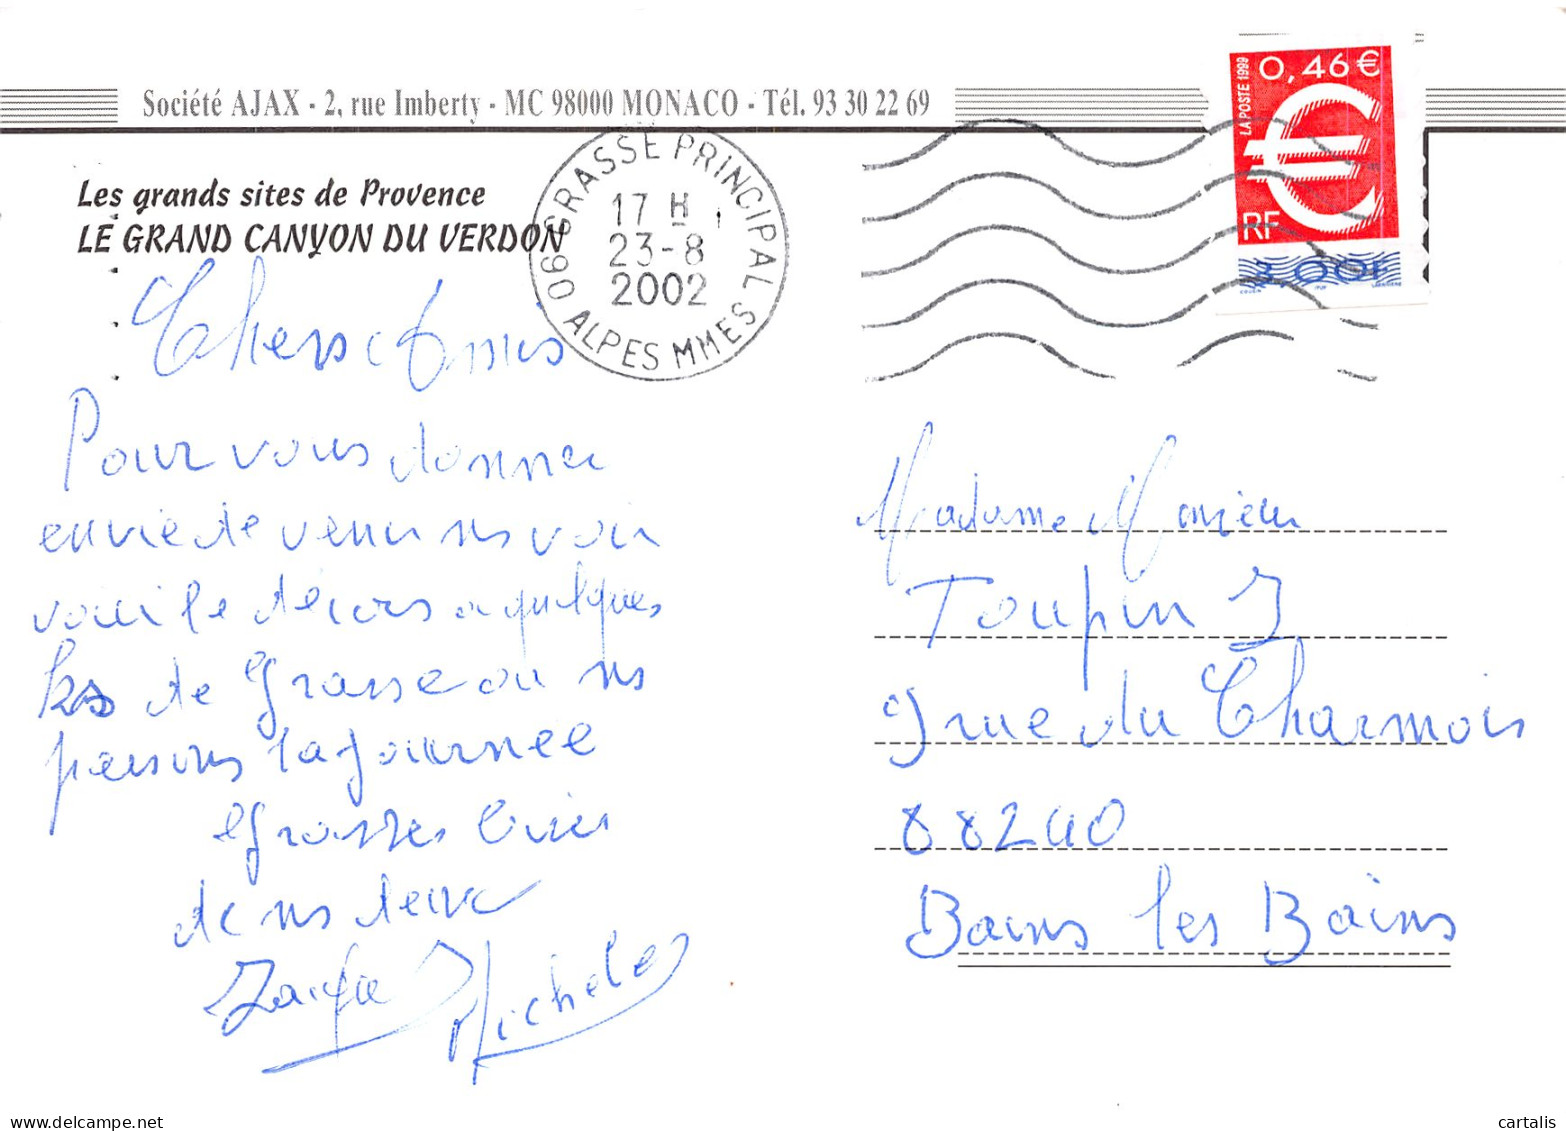 Société AJAX - 2, rue Imberty - MC 98000 MONACO - Tél. 93 30 22 69
Les grands sites de Provence
LE GRAND CANYON DU VERDON
06 GRASSE PRINCIPAL
17 H
23-8
2002
ALPES MMES
LA POSTE 1999
0,46 €
RF
3,00F
Chers Amis
Pour vous donner
envie de venir ns voir
voici le decors a quelques
kms de Grasse ou ns
passons la journée
Grosses Bises
de ns deux
Michele
Madame Monsieur
Toupin J
9 rue du Charmois
88240
Bains les Bains
cartalis